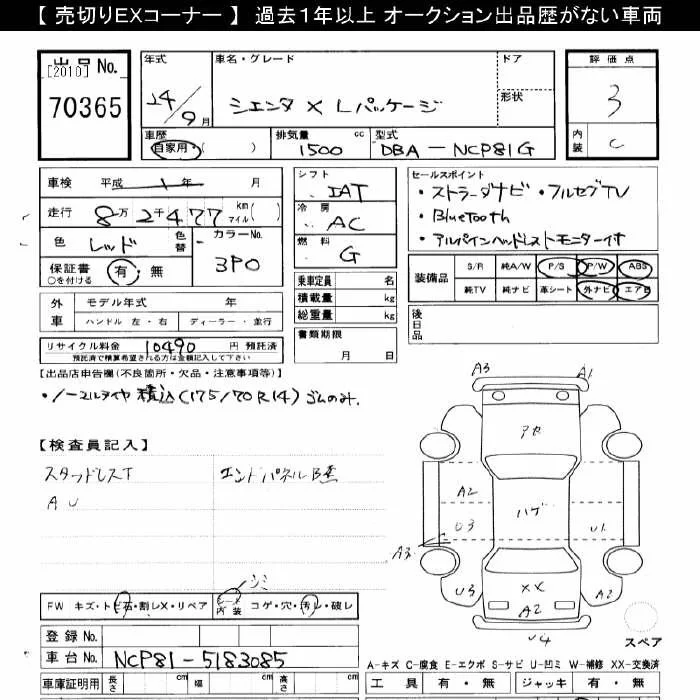 【 売切りEXコーナー 】 過去1年以上 オークション出品歴がない車両
出品 No.
[2010]
70365
年式
24/9月
車名・グレード
シエンタ X Lパッケージ
ドア
形状
評価点
3
内装 C
車歴
自家用・( )
排気量 cc
1500
型式
DBA-NCP81G
車検 平成 年 月
走行 8万2千477 km マイル( )
色 レッド 色替
カラーNo.
3P0
保証書 有・無
○を付ける
シフト
IAT
冷房
AC
燃料
G
セールスポイント
・ストラーダナビ・フルセグTV
・Bluetooth
・アルパインヘッドレストモニター付
装備品
S/R 純A/W P/S P/W ABS
純TV 純ナビ 革シート 外ナビ エアB
外車
モデル年式 年
ハンドル 左・右 ディーラー・並行
乗車定員 名
積載量 kg
総重量 kg
書類期限
月 日
後日品
リサイクル料金 10490 円 預託済
預託済で精算希望される方は金額記入して下さい
【出品店申告欄(不良箇所・欠品・注意事項等)】
・ノーマルタイヤ積込(175/70R14)ゴムのみ.
【検査員記入】
スタッドレスT
エンドパネルB
A U
シミ
FW キズ・トビ石・割レX・リペア
シート内装 コゲ・穴・汚レ・破レ
A3
A1
アセ
A2
ハゲ
U3
U1
A3
U3
XX
A2
A2
U4
スペア
登録 No.
車台 No. NCP81-5183085
A-キズ C-腐食 E-エクボ S-サビ U-凹ミ W-補修 XX-交換済
車庫証明用 長さ 幅 高さ
工具 有・無 ジャッキ 有・無